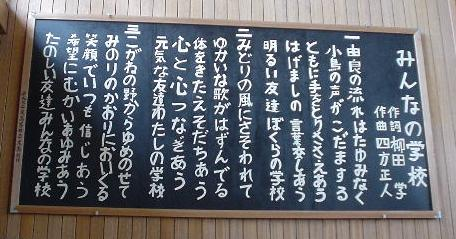 みんなの学校
作詞 柳田 学
作曲 四方正人
一 由良の流れはたゆみなく
小鳥の声がこだまする
ともに手をとりささえあう
はげましの言葉交しあう
明るい友達ぼくらの学校
二 みどりの風にさそわれて
ゆかいな歌がはずんでる
体をきたえそだちあう
心と心つなぎあう
元気な友達わたしの学校
三 こがねの野からゆめのせて
みのりのかおりにおいくる
笑顔でいつも信じあう
希望にむかいあゆみあう
たのしい友達みんなの学校